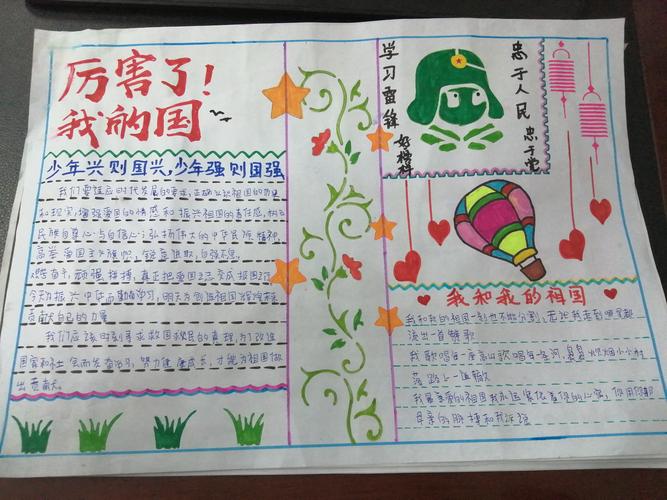 厉害了!
我的国
少年兴则国兴,少年强则国强
我们要适应时代发展的要求,正确认识祖国的历史
和现实,增强爱国的情感和振兴祖国的责任感,树立
民族自尊心与自信心;弘扬伟大的中华民族精神,
高举爱国主义旗帜,锐意进取,自强不息,
艰苦奋斗,顽强拼搏,真正把爱国之志变成报国之行
今天为振兴中华而勤奋学习,明天为创造祖国辉煌未来
贡献自己的力量
我们应该时刻寻求救国救民的真理,为了改造
国家和社会而发奋学习,努力健康成长,才能为祖国做
出贡献。
学习雷锋
好榜样
忠于人民
忠于党
我和我的祖国
我和我的祖国一刻也不能分割,无论我走到哪里都
流出一首赞歌
我歌唱每一座高山歌唱每一条河,袅袅炊烟小小村
落路上一道辙
我最亲爱的祖国我永远紧依着你的心窝,你用你那
母亲的脉搏和我诉说